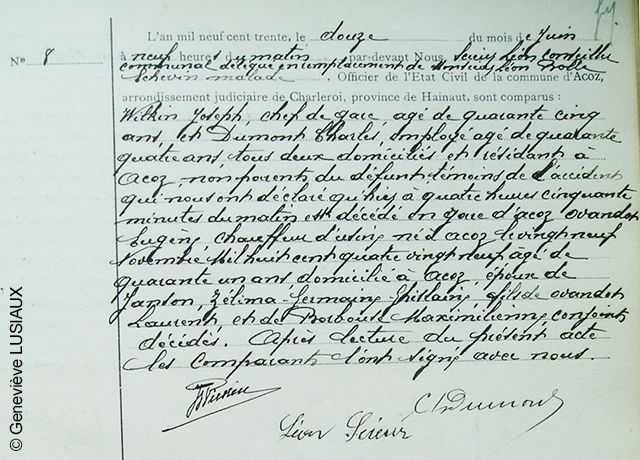 L'an mil neuf cent trente, le douze du mois de Juin
N° 8
à neuf heures du matin par-devant Nous, Scieur Léon conseiller
communal délégué en remplacement de Monsieur Léon
Echevin malade Officier de l'Etat Civil de la commune d'Acoz,
arrondissement judiciaire de Charleroi, province de Hainaut, sont comparus :
Joseph, chef de gare, agé de quarante cinq
ans, et Dumont Charles, employé agé de quarante
quatre ans, tous deux domiciliés et résidant à
Acoz, non parents du défunt témoins de l'accident
qui nous ont déclaré qu'hier à quatre heures cinquante
minutes du matin est décédé en gare d'acoz Ovandot
Eugène, chauffeur d'usine né à acoz le vingt neuf
Novembre Mil huit cent quatre vingt neuf âgé de
quarante un ans domicilié à Acoz, époux de
Janson, Zélima Germaine Ghislaine fils de Ovandot
Laurent, et de Maximilienne, conjoints
décédés. Après lecture du présent acte
les comparants l'ont signé avec nous.
Ch Dumont
Léon Scieur
© Geneviève LUSIAUX